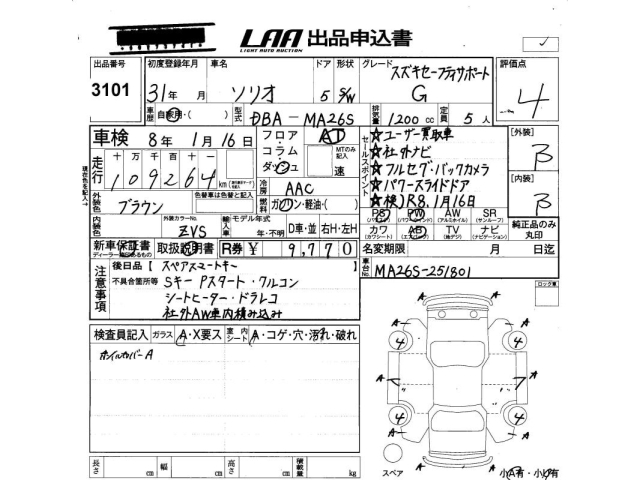 LAA 出品申込書
LIGHT AUTO AUCTION
出品番号 初度登録年月 車名 ドア 形状 グレード スズキセーフティサポート 評価点
3101 31年 月 ソリオ 5 S/W G 4
車歴 自家用・( ) 型式 DBA-MA26S 排気量 1200cc 定員 5人
車検 8年 1月 16日 フロア AT ★ユーザー買取車 [外装]
コラム ★社外ナビ B
走行 十万千百十 ダッシュ MTのみ記入 速 セールスポイント ★フルセグ・バックカメラ
109264km 冷房 AAC ★パワースライドドア [内装]
現在色を記入→ 外装色 ブラウン 色替車は色替と記入 燃料 ガソリン・軽油・( ) ★検)R8.1月16日 B
内装色 外装カラーNo. ZVS 輸入車 モデル年式 年・不明 D車・並 右H・左H PS PW AW SR
(パワステ) (パワーウィンド) (アルミホイル) (サンルーフ)
カワ エアB TV ナビ 純正品のみ丸印
(レザーシート) (エアバック) (地デジ) (ナビゲーション)
新車保証書 取扱説明書 R券 ¥ 9,770 名変期限 月 日迄
ディーラー記載のあるもの
車台No. MA26S-251801
注意事項 後日品 [ スペアスマートキー ]
不具合箇所等 Sキー Pスタート・クルコン
シートヒーター・ドラレコ
社外AW車内積み込み
ロック車
検査員記入 ガラス A・X要ス 室内シート A・コゲ・穴・汚れ・破れ
ホイルカバーA
A
4 4
A A
A 〃 〃 A
4 4
A A
A
長さ cm 幅 cm 高さ cm 積載量 kg
スペア 小A有・小U有